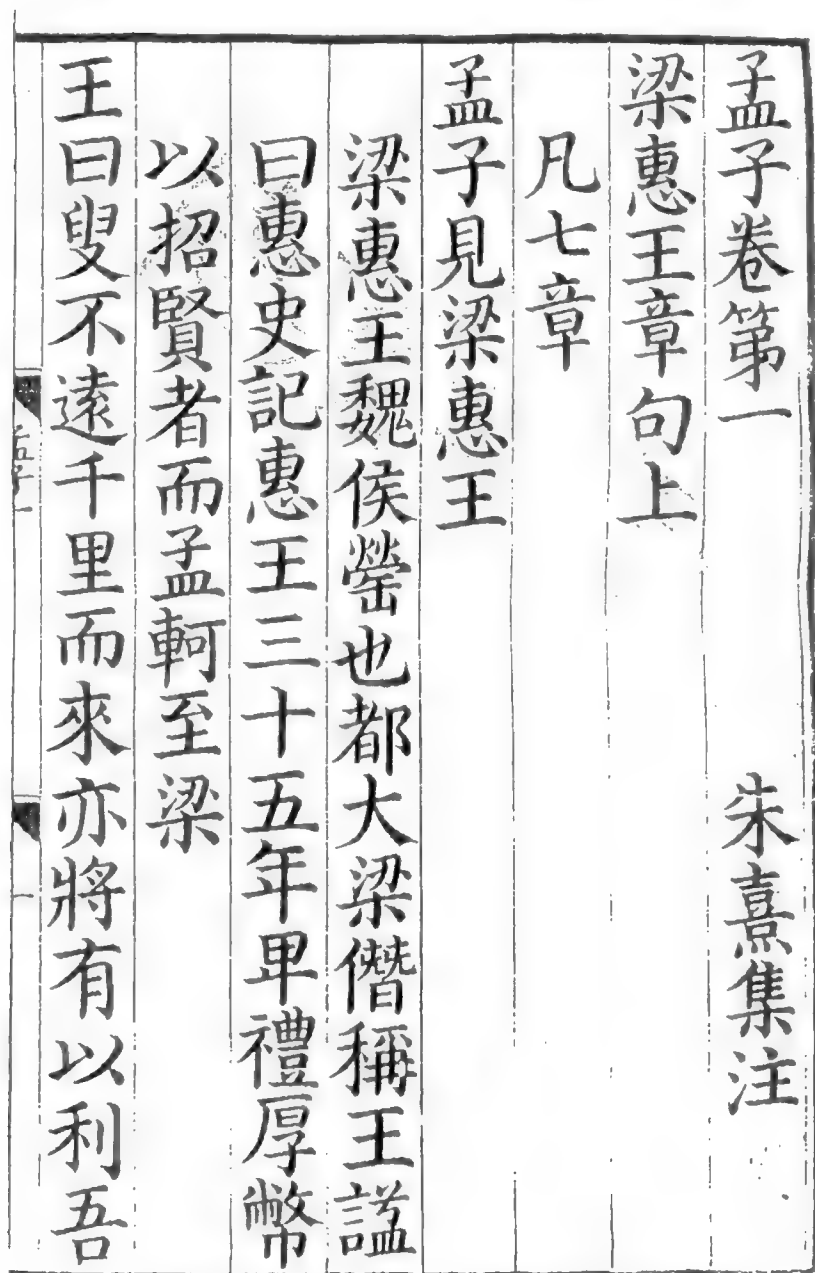 孟子卷第一　朱熹集注
梁惠王章句上
凡七章
孟子見梁惠王
梁惠王魏侯罃也都大梁僭稱王諡
曰惠史記惠王三十五年卑禮厚幣
以招賢者而孟軻至梁
王曰叟不遠千里而來亦將有以利吾